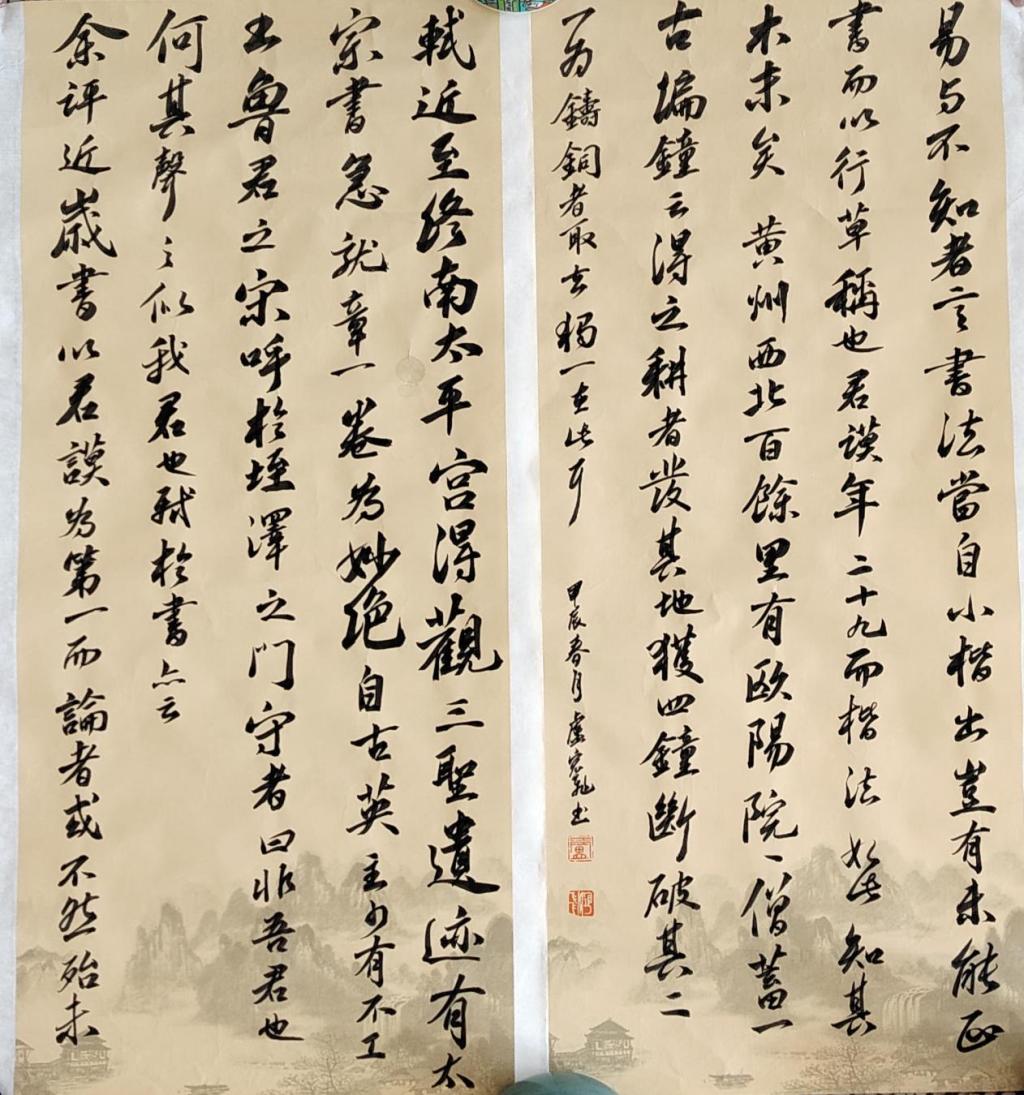 軾近至終南太平宮得觀三聖遺迹有太
宗書急就章一卷為妙絕自古英主少有不工
书魯君之宋呼於垤澤之門守者曰非吾君也
何其聲之似我君也軾於書亦云
余評近歲書以君謨為第一而論者或不然殆未
易与不知者言書法當自小楷出豈有未能正
書而以行草稱也君謨年二十九而楷法如此知其
本末矣 黄州西北百餘里有歐陽院々僧蓄一
古編鐘云得之耕者發其地獲四鐘斷破其二
一為鑄銅者取去獨一在此耳
甲辰春月盧书